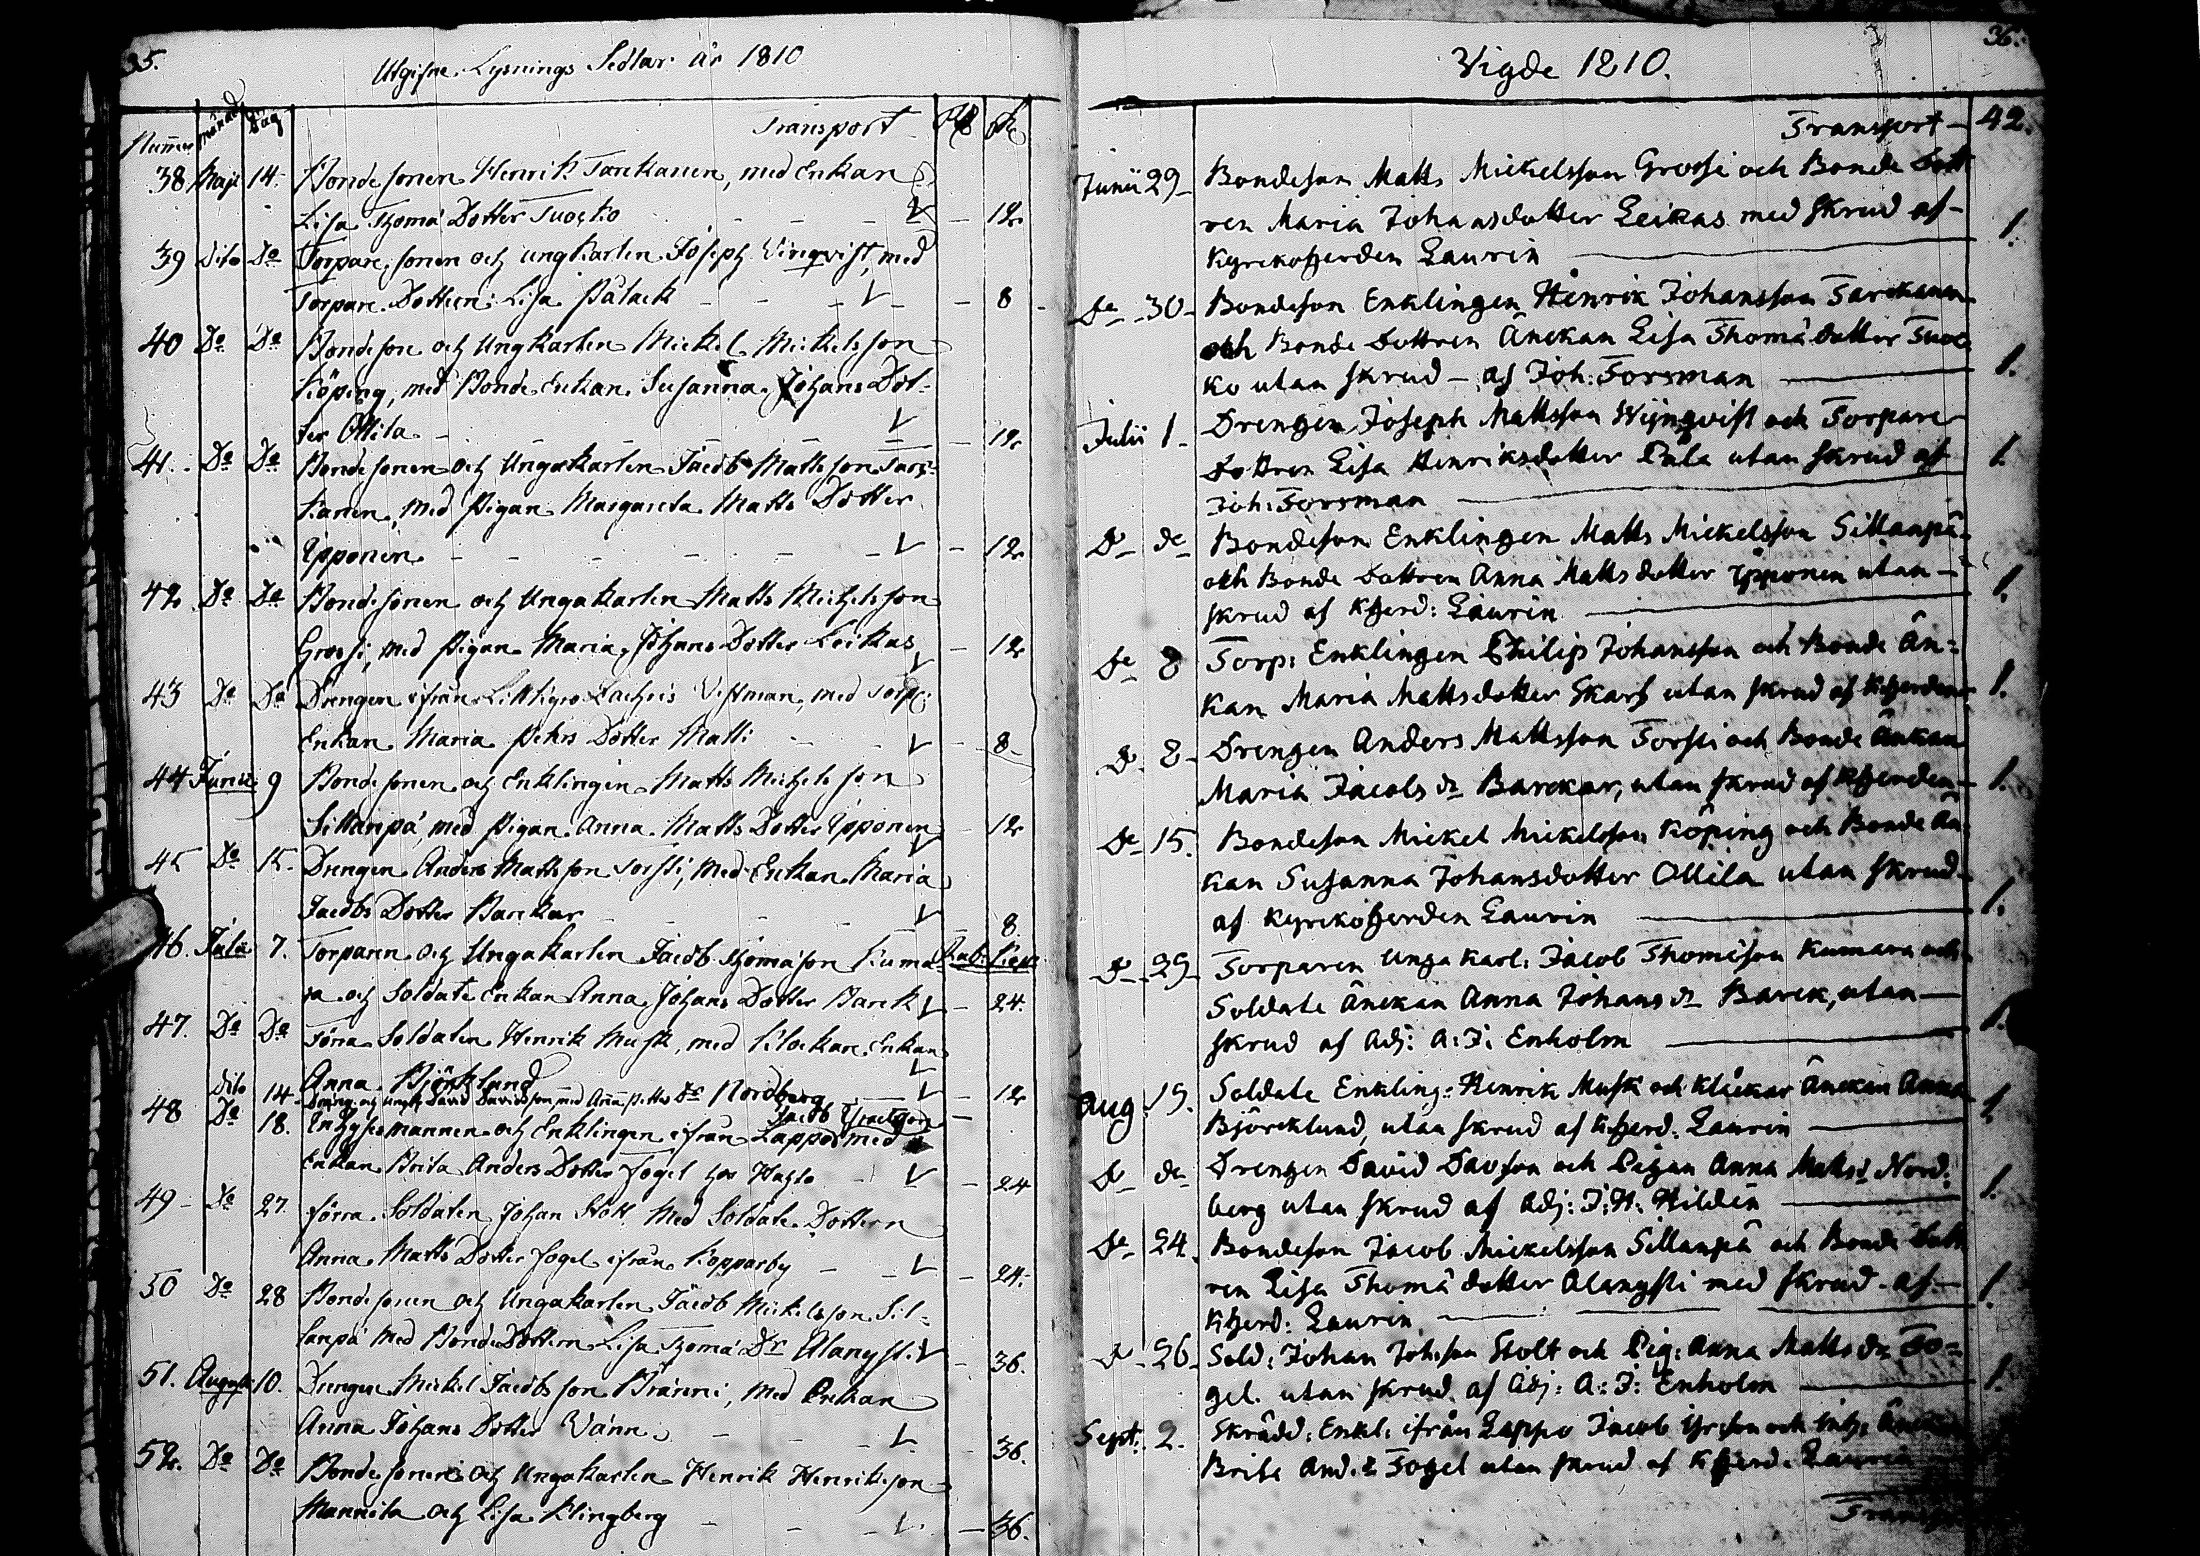 35.
Utgifne Lysnings Sedlar år 1810
Numer månad Dag Transport Rß sk
38 Maji 14. Bonde sonen Henrik Tarckanen, med Enkan
Lisa Thomä Dotter Tuocko 12
39 Dito Do Torpare sonen och ungkarlen Joseph Winqvist, med
Torpare Dottren Lisa Pålack 8
40 Do Do Bondeson och Ungkarlen Mickel Mickelsson
Köping, med Bonde Enkan Susanna Johans Dot-
ter Ollila 12
41. Do Do Bonde sonen och Ungakarlen Jacob Mattsson Tarc-
kanen, med Pigan Margareta Matts Dotter
Ypponen 12
42. Do Do Bonde sonen och Ungakarlen Matts Michelsson
Grossi, med Pigan Maria Johans Dotter Leikas 12
43 Do Do Drengen ifrån Zachris Vestman, med Torp:
Enkan Maria Pehrs Dotter Matti 8
44 Junii 9 Bonde sonen och Enklingen Matts Michelsson
Sillanpä, med Pigan Anna Matts Dotter Ypponen 12
45 Do 15. Drengen Anders Mattsson Forssti, med Enkan Maria
Jacobs Dotter Barckar 8.
46. Julii 7. Torparen och Ungakarlen Jacob Thomäson Kuma-
ra och Soldate Enkan Anna Johans Dotter Barck 24.
47. Do Do Förra Soldaten Henrik Musk, med Klockare Enkan
Anna Björklund 12
Dito 14 Dreng. och Ungk: David Davidsson med Anna Matts Dr Nordberg
48 Do 18. Enklingen ifrån Lappo Jacob med
Enkan Brita Anders Dotter Fogel 24
49 Do 27. förra Soldaten Johan Stolt, Med Soldate Dottern
Anna Matts Dotter Fogel ifrån Kopparby 24.
50 Do 28 Bonde sonen och Ungakarlen Jacob Mickelsson Sil-
lanpä Med Bonde Dottern Lisa Thomä Dr Alangysti 36.
51. Augusti 10. Drengen Mickel Jacobsson Bränni, Med Enkan
Anna Johans Dotter Vänni 36.
52. Do Do Bonde sonen och Ungakarlen Henrik Henriksson
Mannila och Lisa Klingberg 36.
36.
Vigde 1810.
Transport 42.
Junii 29 Bondeson Matts Mickelsson Grossi och Bonde Dott
ren Maria Johansdotter Leikas med skrud af
Kyrckoherden Laurin 1.
De 30 Bondeson Enklingen Henrik Johansson Tarckanen
och Bonde Dottren Änckan Lisa Thomä dotter Tuoc
ko utan skrud af Joh: Forsman 1.
Julii 1 Drengen Joseph Mattsson Wijnqvist och Torpare
Dottren Lisa Henriksdotter Pala utan skrud af
Joh: Forsman 1.
De de Bondeson Enklingen Matts Mickelsson Sillanpä
och Bonde Dottren Anna Matts dotter Ypponen utan
skrud af Kherd: Laurin 1.
De 8 Torp: Enklingen Philip Johansson och Bonde Än=
kan Maria Mattsdotter Skarf utan skrud af Kherden 1.
De 8 Drengen Anders Mattsson Forssti och Bonde Änkan
Maria Jacobs dr Barckar, utan skrud af Kherden 1.
De 15. Bondeson Mickel Mickelsson Köping och Bonde Än
kan Susanna Johansdotter Ollila utan skrud
af Kyrckoherden Laurin 1.
De 29 Torparen Unga Karl: Jacob Thomäson Kumara och
Soldate Änckan Anna Johans dr Barck, utan
skrud af Adj: A: J: Enholm 1.
Aug. 19. Soldate Enkling: Henrik Musk och Klåckar Änckan Anna
Björcklund, utan skrud af Kherd: Laurin 1
De de Drengen David Davson och Pigan Anna Mattsd Nord:
berg utan skrud af Adj: J: H: Hildén 1.
De 24. Bondeson Jacob Mickelsson Sillanpä och Bonde Dott
ren Lisa Thomä dotter Alangysti med skrud af
Kherd: Laurin 1.
De 26 Sold: Johan Johsson Stolt och Pig: Anna Matts dr Fo=
gel utan skrud af Adj: A: J: Enholm 1.
Sept. 2. Skrädd: Enkl: ifrån Lappo Jacob och
Brita And: d Fogel utan skrud af Kherd: Laurin
Transp